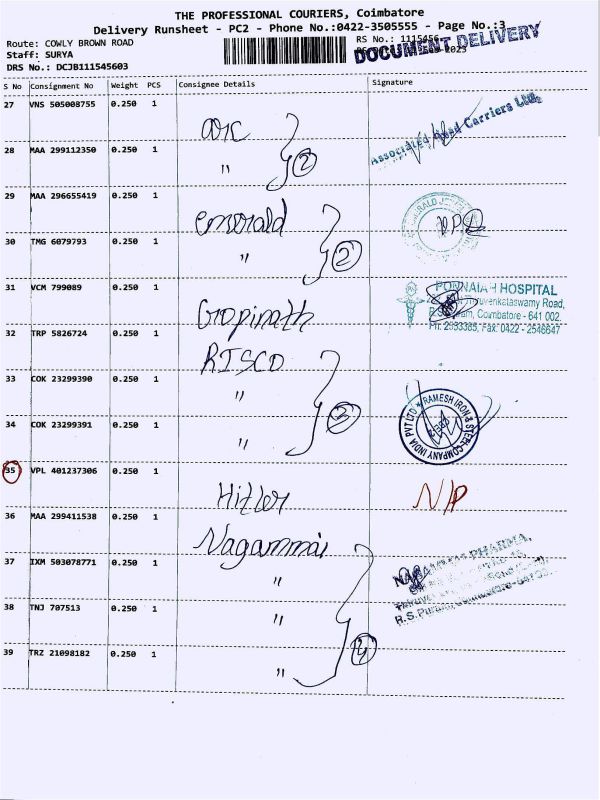 THE PROFESSIONAL COURIERS, Coimbatore
Delivery Runsheet - PC2 - Phone No.:0422-3505555 - Page No.:3
Route: COWLY BROWN ROAD
RS No.: 1115456
Staff: SURYA
2023
DOCUMENT DELIVERY
DRS No.: DCJB111545603
S No Consignment No Weight PCS Consignee Details Signature
27 VNS 505008755 0.250 1
arc
Associated Road Carriers Ltd.
28 MAA 299112350 0.250 1
" 2
29 MAA 296655419 0.250 1
emerald
EMERALD
30 TMG 6079793 0.250 1
" 2
31 VCM 799089 0.250 1
PONNAIAH HOSPITAL
Thiruvenkataswamy Road,
Coimbatore - 641 002.
Ph: 2553385, Fax: 0422 - 2546647
Gopinath
32 TRP 5826724 0.250 1
RISCO
33 COK 23299390 0.250 1
"
3
RAMESH IRON & STEEL COMPANY INDIA PVT LTD
34 COK 23299391 0.250 1
"
35 VPL 401237306 0.250 1
Hitler N/P
36 MAA 299411538 0.250 1
Nagammai
NAGAMMAI PHARMA,
37 IXM 503078771 0.250 1
"
R.S.Puram, Coimbatore
38 TNJ 707513 0.250 1
"
4
39 TRZ 21098182 0.250 1
"